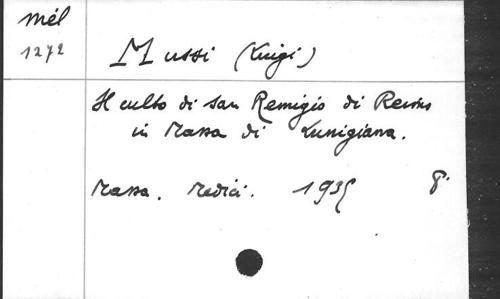 Mél
1272
Mussi (Luigi)
Il culto di san Remigio di Reims
in Massa di Lunigiana.
Massa. Medici. 1935 8°